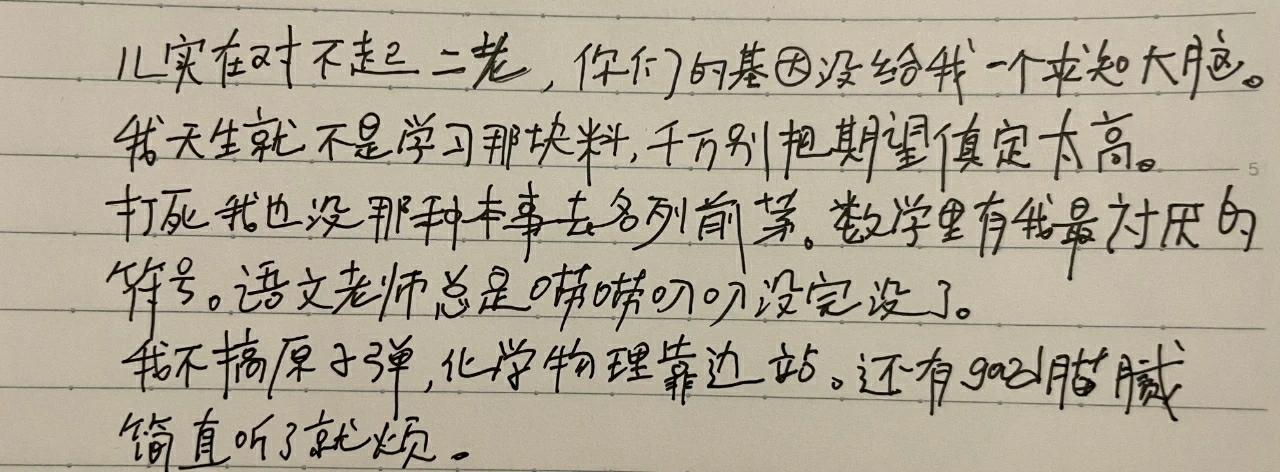 儿实在对不起二老,你们的基因没给我一个求知大脑。
我天生就不是学习那块料,千万别把期望值定太高。
打死我也没那种本事去名列前茅。数学里有我最讨厌的
符号。语文老师总是唠唠叨叨没完没了。
我不搞原子弹,化学物理靠边站。还有
简直听了就烦。
5